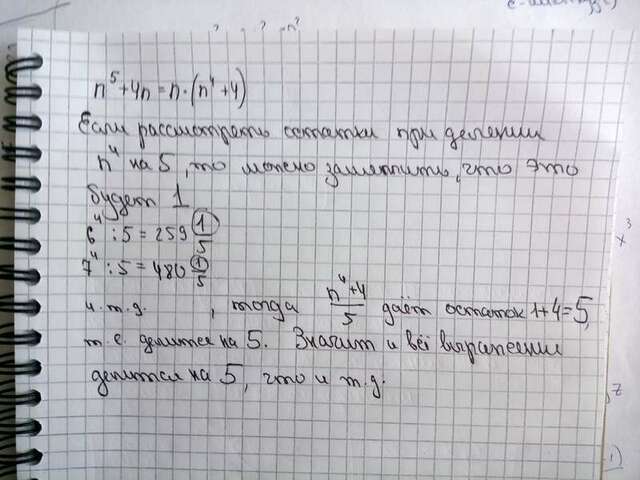 n⁵+4n=n·(n⁴+4)
Если рассмотреть остатки при делении
n⁴ на 5, то можно заметить, что это
будет 1
6⁴ : 5 = 259 1/5
7⁴ : 5 = 480 1/5
и т.д. , тогда n⁴+4/5 даёт остаток 1+4=5,
т.е. делится на 5. Значит и всё выражение
делится на 5, что и т.д.
x³
1)